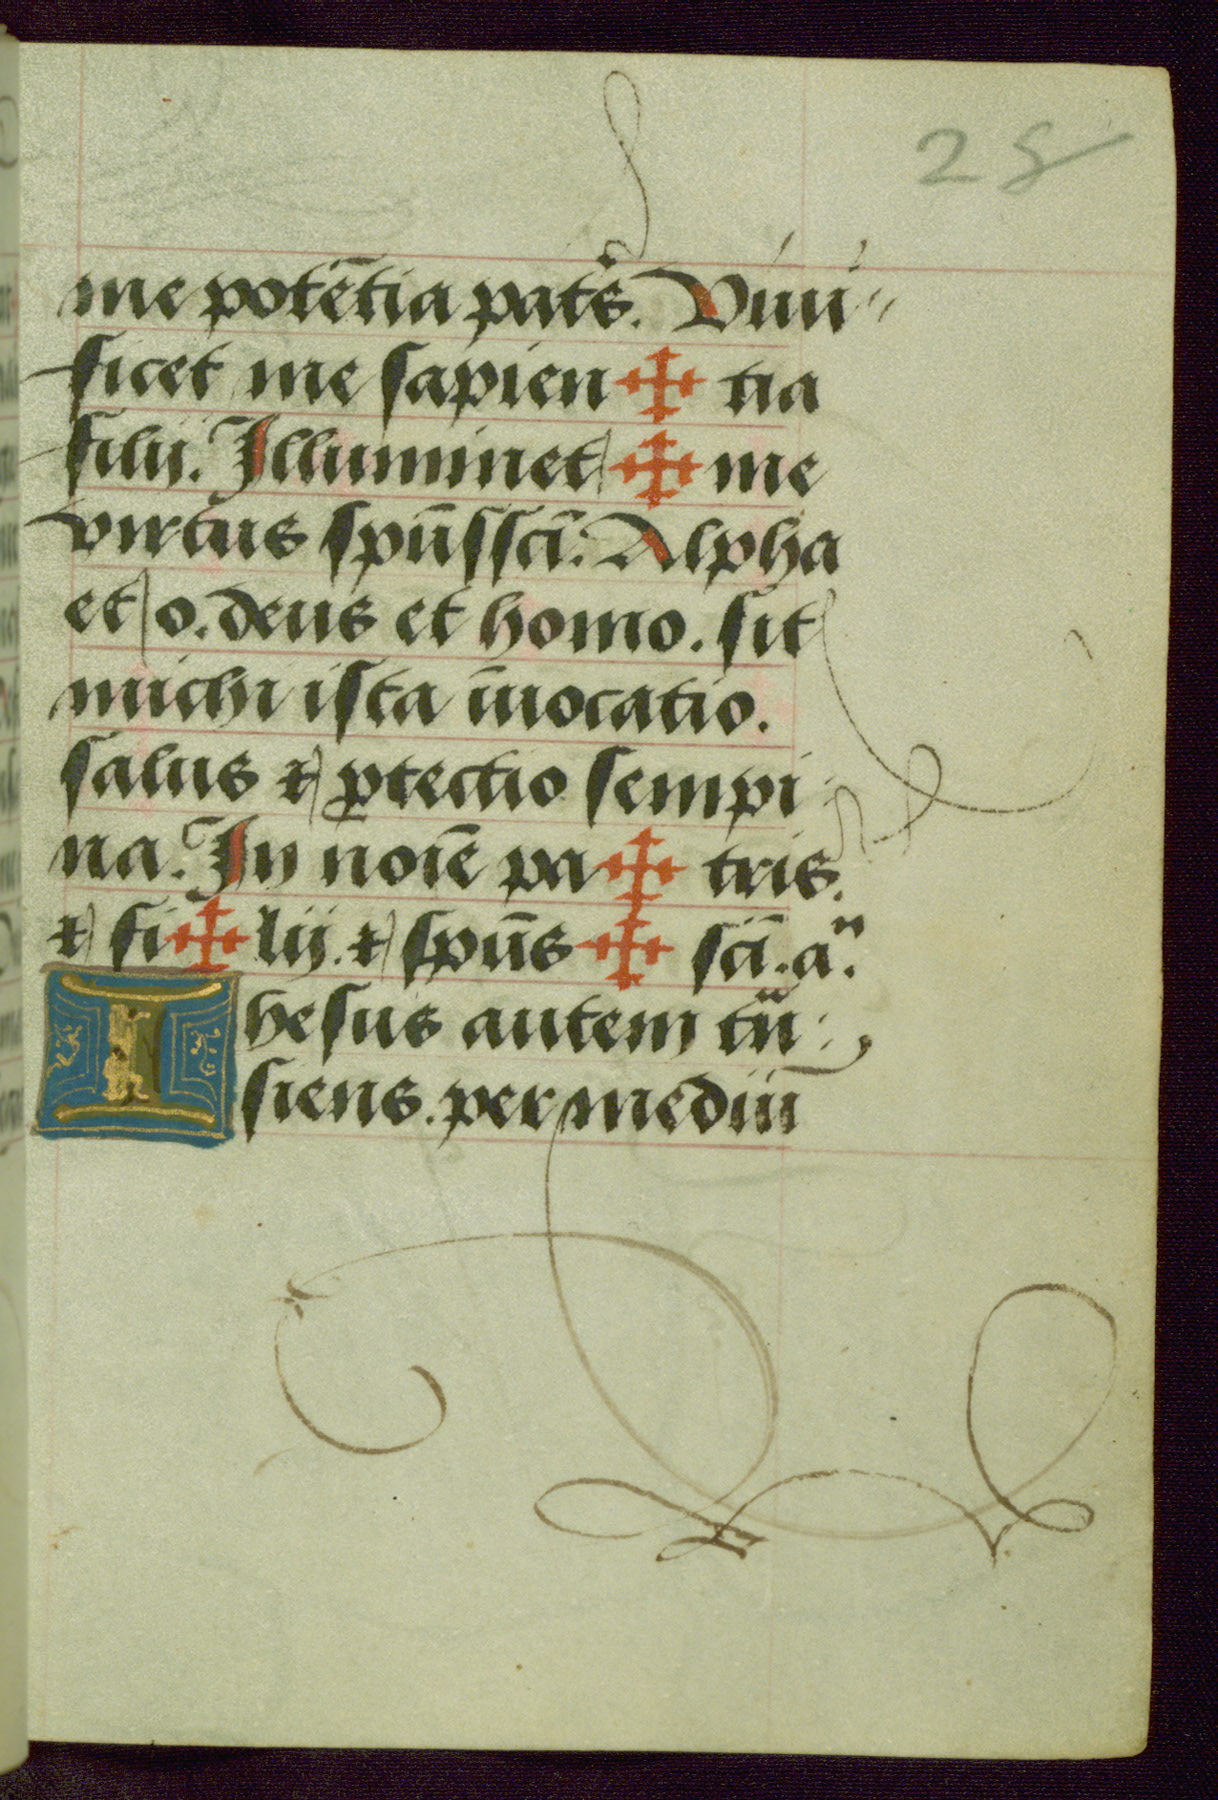 28
me potētia patꝭs. Viui
ficet me sapien ✠ tia
filij. Illuminet ✠ me
virtus spūs sci̅. Alpha
et o. deus et homo. sit
michi ista īuocatio.
salus ⁊ ꝓtectio sempi
na. In noīe pa ✠ tris.
⁊ fi ✠ lij. ⁊ spūs ✠ sci̅. aⁿ.
Ihesus autem trā
siens. per mediū